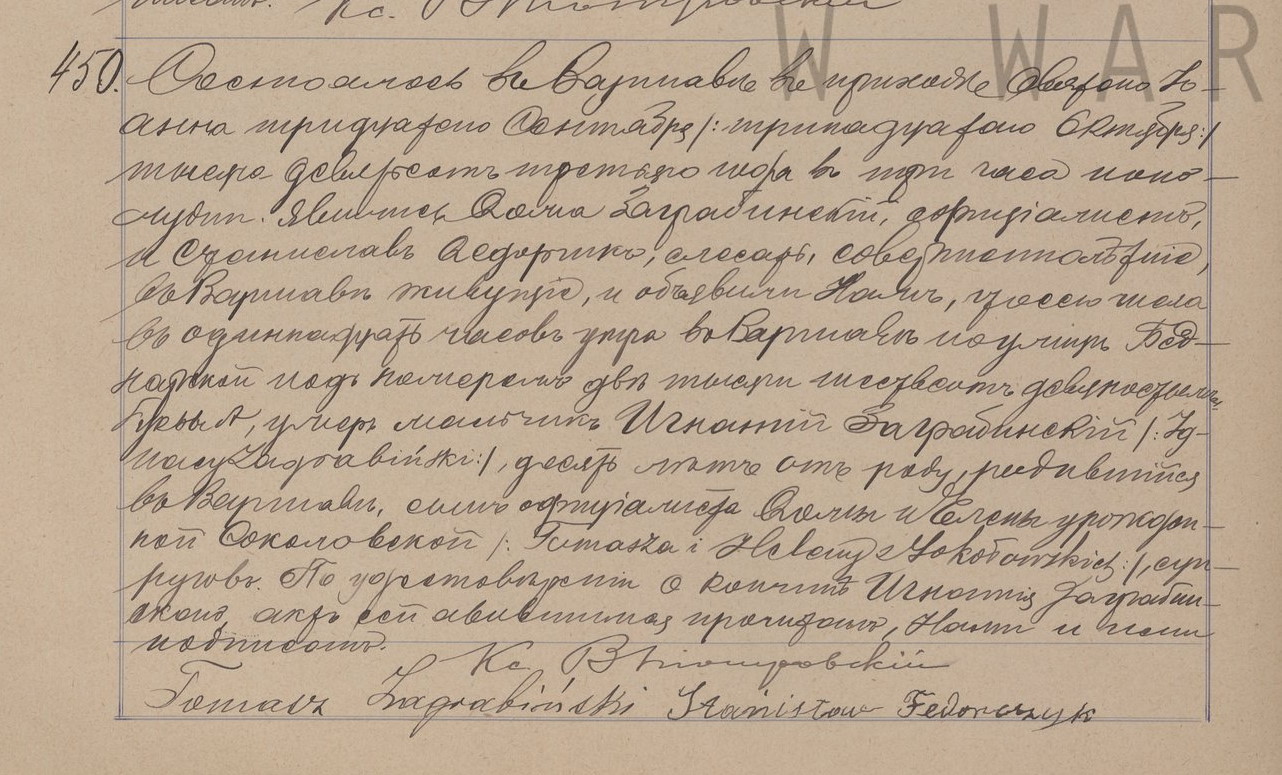 Кс. В
W WAR
450. Состоялось въ Варшавѣ въ приходѣ Святого Iо-
анна тридцатого Сентября /: тринадцатого Октября :/
тысяча девятьсотъ третьяго года въ три часа попо-
лудни. Явились Ѳома Заграбинскiй, офицiалистъ,
и Станиславъ Ѳедорчикъ, слесарь, совершеннолѣтнiе,
въ Варшавѣ живущiе, и объявили Намъ, что сего числа
въ одиннадцать часовъ утра въ Варшавѣ по улицѣ Бед-
нарской подъ номеромъ двѣ тысячи шестьсотъ девяностымъ
буквы А, умеръ мальчикъ Игнатiй Заграбинскiй /: Ig-
nacy Zagrabiński :/, десять лѣтъ отъ роду, родившiйся
въ Варшавѣ, сынъ офицiалиста Ѳомы и Елены урожден-
ной Соколовской /: Tomasza i Heleny z Sokołowskich :/, суп-
руговъ. По удостовѣренiи о кончинѣ Игнатiя Заграбин-
скаго, актъ сей явившимся прочитанъ, Нами и ими
подписанъ.
Кс. В
Tomasz Zagrabiński Stanisław Fedorczyk